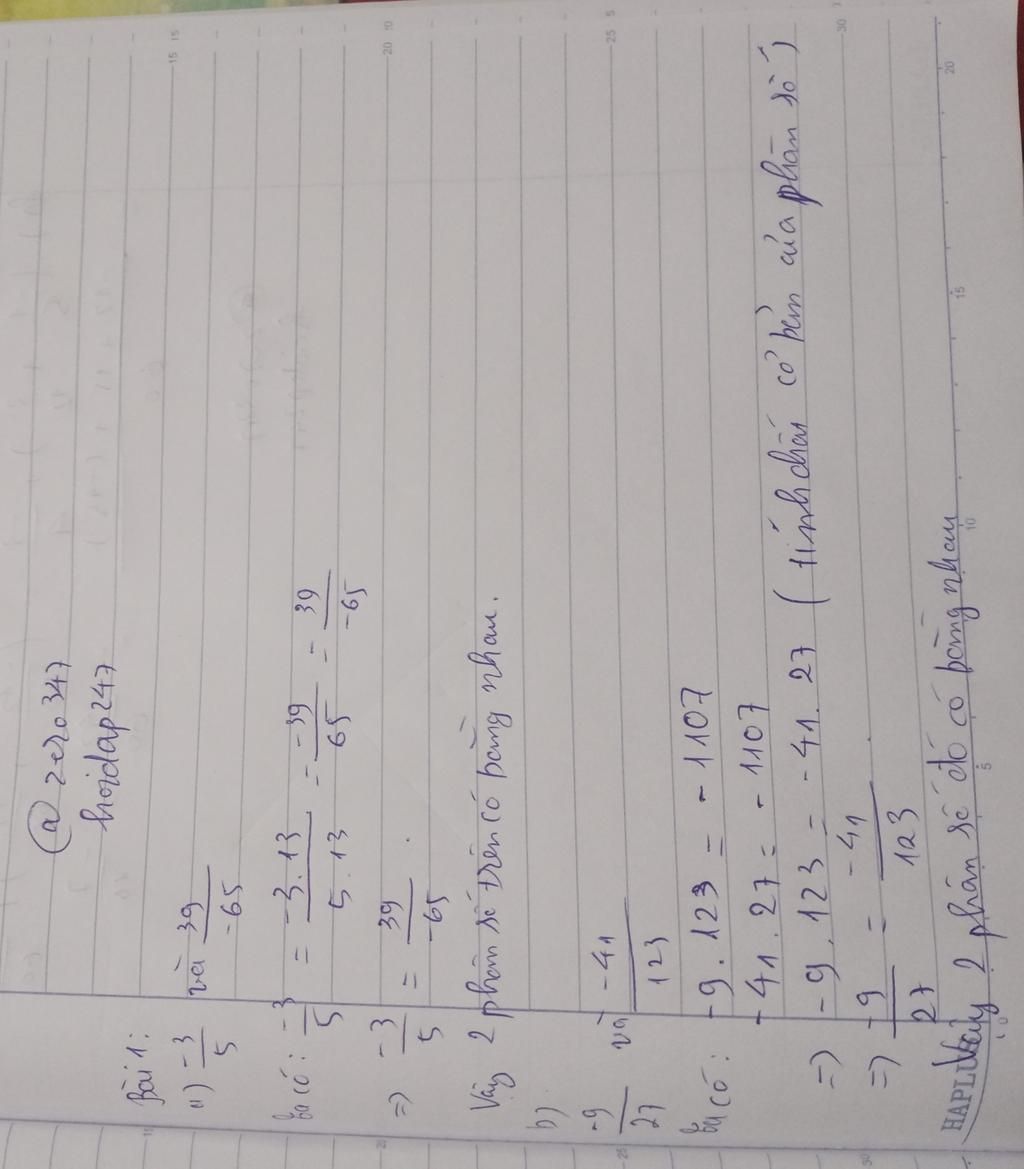 @ zero 347
hoidap247
Bài 1:
a) -3/5 và 39/-65
ta có: -3/5 = -3.13/5.13 = -39/65 = 39/-65
=> -3/5 = 39/-65.
Vậy 2 phân số trên có bằng nhau.
b)
-9/27 và -41/123
ta có: -9.123 = -1107
-41.27 = -1107
=> -9.123 = -41.27 (tính chất cơ bản của phân số)
=> -9/27 = -41/123.
Vậy 2 phân số đó có bằng nhau
HAPLUS
15 15
20 10
25 5
30
15
20
25
30
0 5 10 15 20